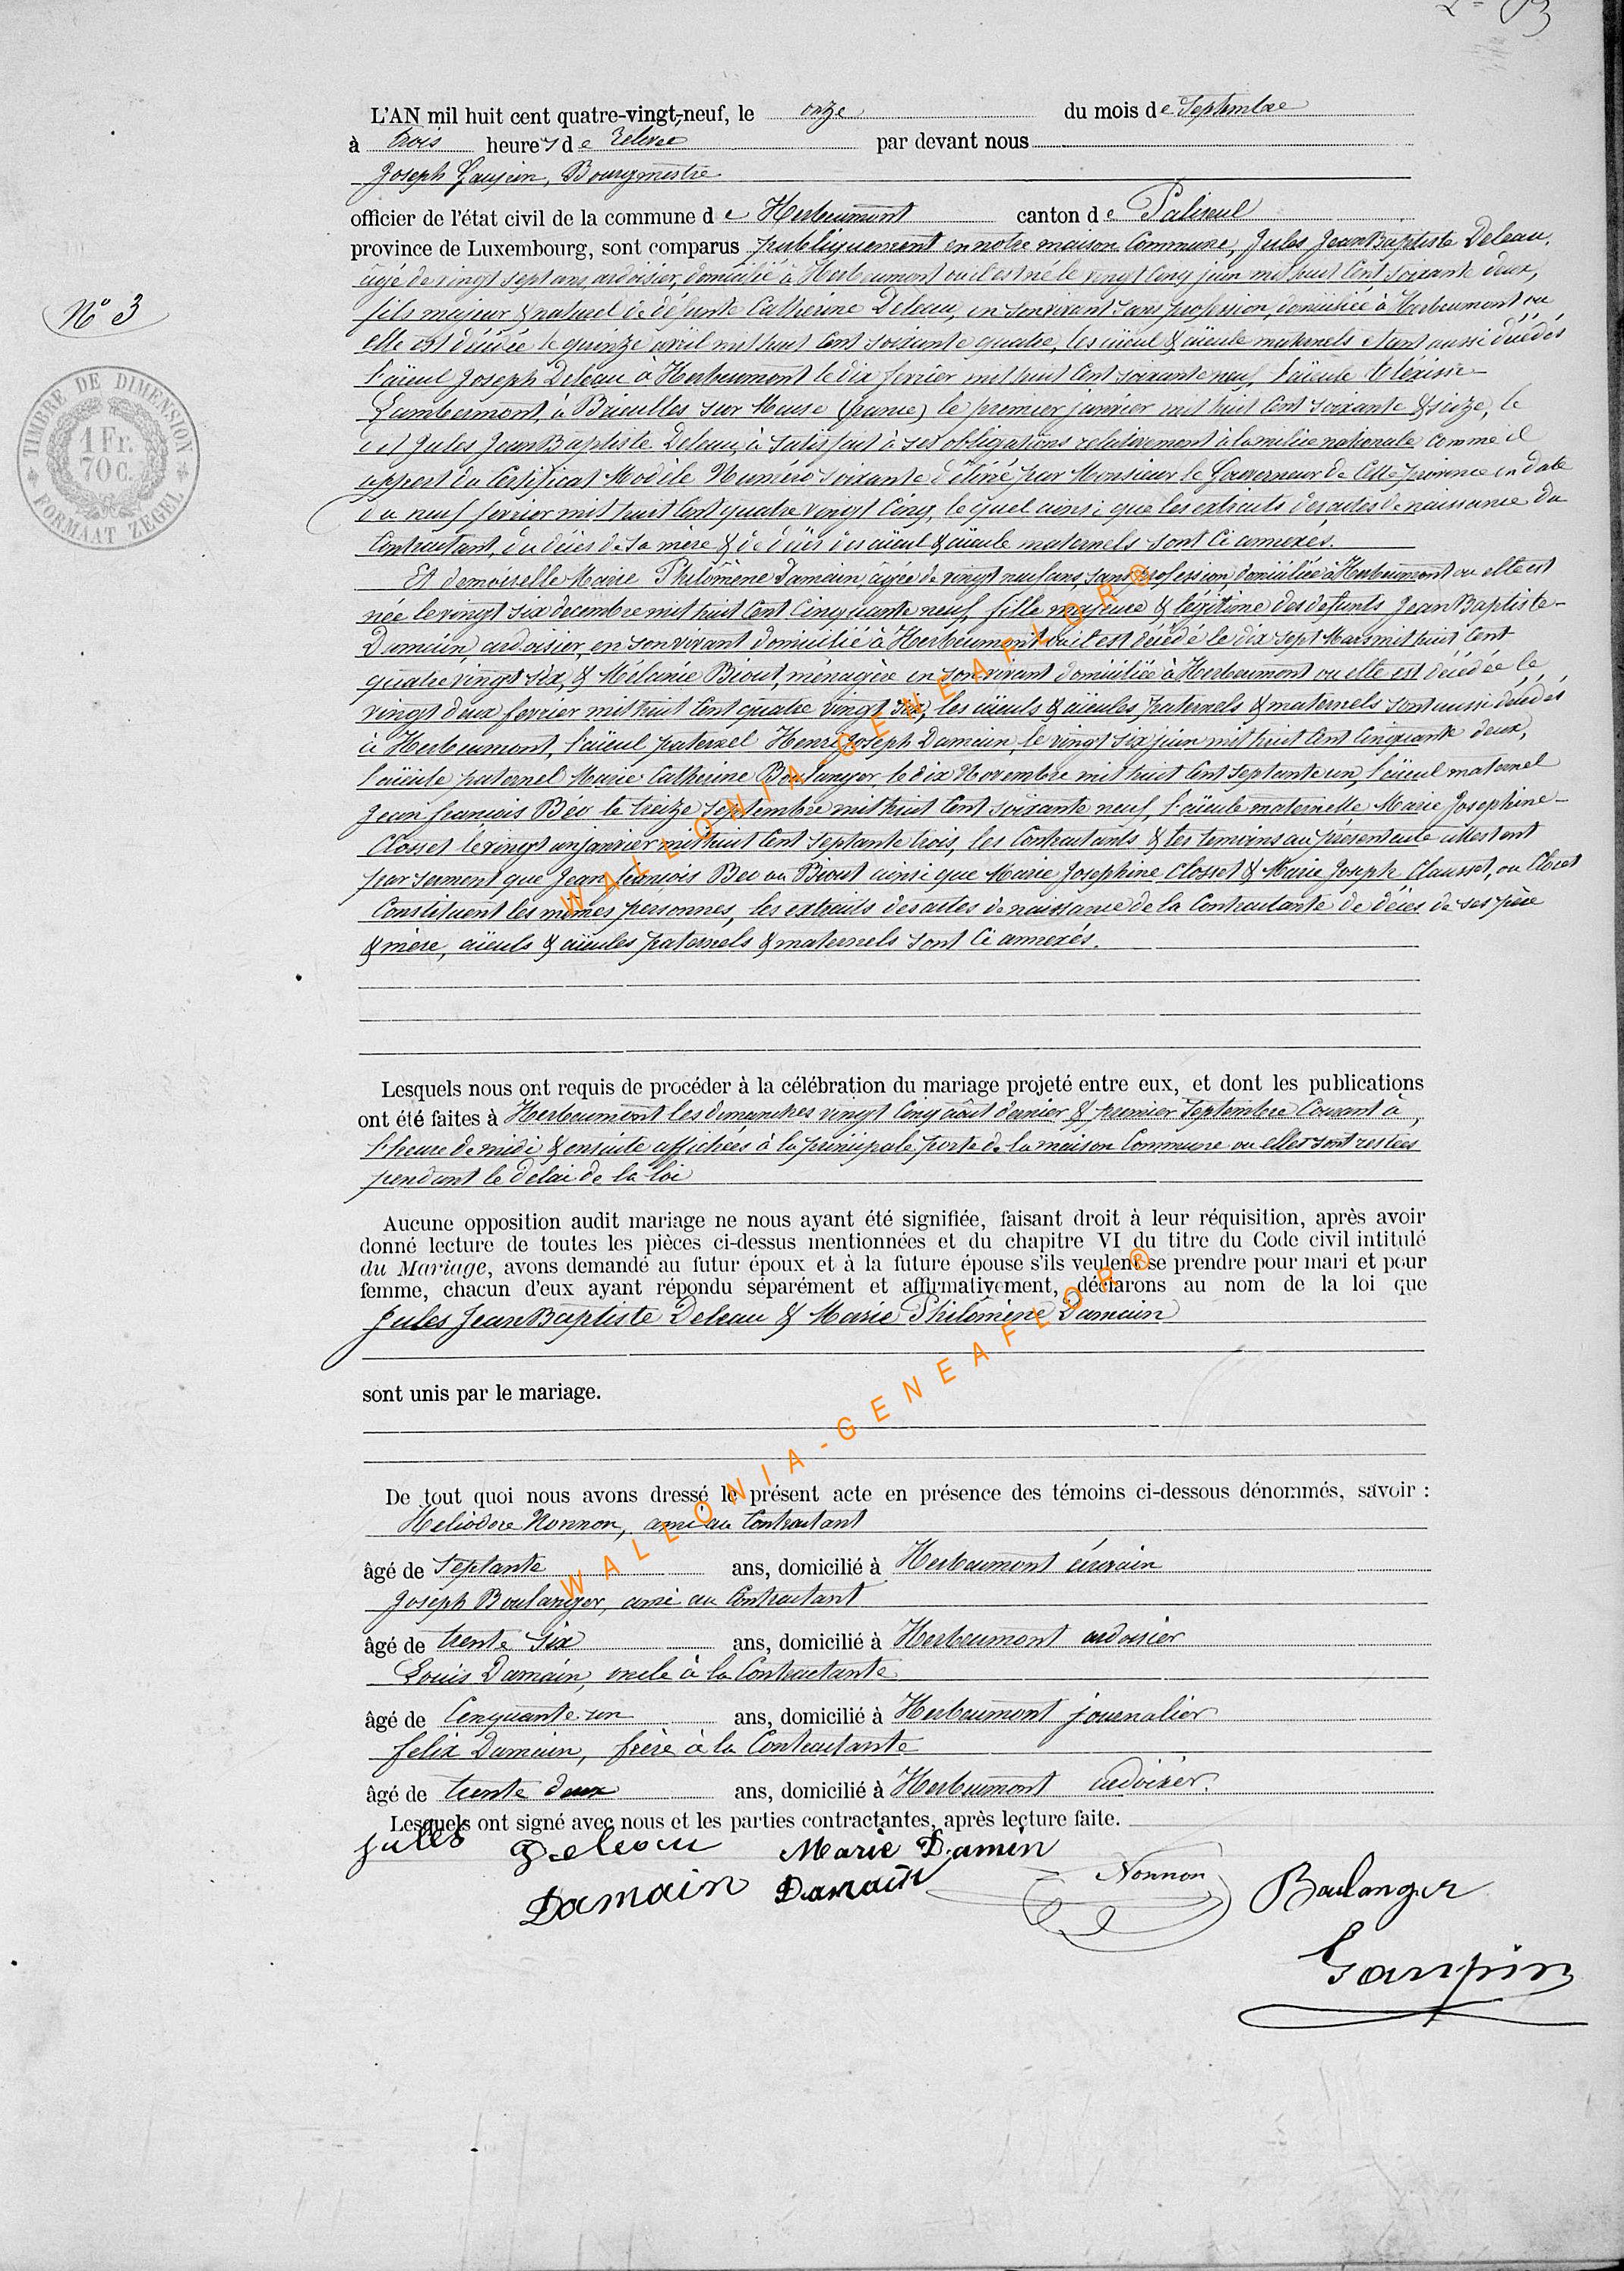 N° 3
TIMBRE DE DIMENSION
1 Fr.
70 c.
FORMAAT ZEGEL
L'AN mil huit cent quatre-vingt-neuf, le onze du mois de Septembre
à trois heures de relevée par devant nous
Joseph Bourgmestre
officier de l'état civil de la commune de Herbeumont canton de Paliseul
province de Luxembourg, sont comparus publiquement en notre maison Commune, Jules Jean Baptiste Deleau,
âgé de vingt sept ans, ardoisier, domicilié à Herbeumont où il est né le vingt cinq juin mil huit Cent soixante deux,
fils majeur & naturel de défunte Catherine Deleau, en son vivant sans profession, domiciliée à Herbeumont ou
elle est décédée le quinze avril mil huit Cent soixante quatre, les aïeul & aïeule maternels étant aussi décédés
l'aïeul Joseph Deleau à Herbeumont le dix fevrier mil huit Cent soixante neuf, l'aïeule
Lambermont, à Brieulles sur Meuse (france) le premier janvier mil huit Cent soixante & seize, le
dit Jules Jean Baptiste Deleau, à satisfait à ses obligations relativement à la milice nationale comme il
appert du Certificat Modèle Numéro soixante délivré par Monsieur le Gouverneur de Cette province en date
du neuf fevrier mil huit Cent quatre vingt Cinq, lequel ainsi que les extraits des actes de naissance du
Contractant, du décès de sa mère & de décès des aïeul & aïeule maternels sont Ci annexés.
Et demoiselle Marie Philomène Damain âgée de vingt neuf ans, sans profession domiciliée à Herbeumont ou elle est
née le vingt six decembre mil huit Cent Cinquante neuf, fille majeure & légitime des defunts Jean Baptiste
Damain, ardoisier, en son vivant domicilié à Herbeumont ou il est décédé le dix sept Mars mil huit Cent
quatre vingt six, & Mélanie Biout, ménagère en son vivant domiciliée à Herbeumont ou elle est décédée le
vingt deux fevrier mil huit Cent quatre vingt six, les aïeuls & aïeules paternels & maternels sont aussi décédés
à Herbeumont, l'aïeul paternel Henri Joseph Damain le vingt six juin mil huit Cent Cinquante deux,
l'aïeule paternel Marie Catherine Boulanger, le dix Novembre mil huit Cent septante un, l'aïeul maternel
Jean françois Béo le treize septembre mil huit Cent soixante neuf, l'aïeule maternelle Marie Josephine
Closset le vingt un janvier mil huit Cent septante trois, les Contractants & les temoins au présent acte attestent
par serment que Jean françois Beo ou Biout ainsi que Marie Josephine Closset & Marie Joseph Clausset, ou
Constituent les mêmes personnes, les extraits des actes de naissance de la Contractante de décès de ses père
& mère, aïeuls & aïeules paternels & maternels sont Ci annexés.
Lesquels nous ont requis de procéder à la célébration du mariage projeté entre eux, et dont les publications
ont été faites à Herbeumont les dimanches vingt Cinq août dernier & premier septembre Courant à
l'heure de midi & ensuite affichées à la principale porte de la maison Commune ou elles sont restées
pendant le délai de la loi
Aucune opposition audit mariage ne nous ayant été signifiée, faisant droit à leur réquisition, après avoir
donné lecture de toutes les pièces ci-dessus mentionnées et du chapitre VI du titre du Code civil intitulé
du Mariage, avons demandé au futur époux et à la future épouse s'ils veulent se prendre pour mari et pour
femme, chacun d'eux ayant répondu séparément et affirmativement, déclarons au nom de la loi que
Jules Jean Baptiste Deleau & Marie Philomène Damain
sont unis par le mariage.
De tout quoi nous avons dressé le présent acte en présence des témoins ci-dessous dénommés, savoir :
Heliodore Nonnon, ami au Contractant
âgé de septante ans, domicilié à Herbeumont écrivain
Joseph Boulanger, ami au Contractant
âgé de trente six ans, domicilié à Herbeumont ardoisier
Louis Damain, oncle à la Contractante
âgé de Cinquante un ans, domicilié à Herbeumont journalier
felix Damain, frère à la Contractante
âgé de trente deux ans, domicilié à Herbeumont ardoisier.
Lesquels ont signé avec nous et les parties contractantes, après lecture faite.
Jules Deleau Marie Damin
Damain Damain Nonnon Boulanger
WALLONIA-GENEAFLOR®
WALLONIA-GENEAFLOR®